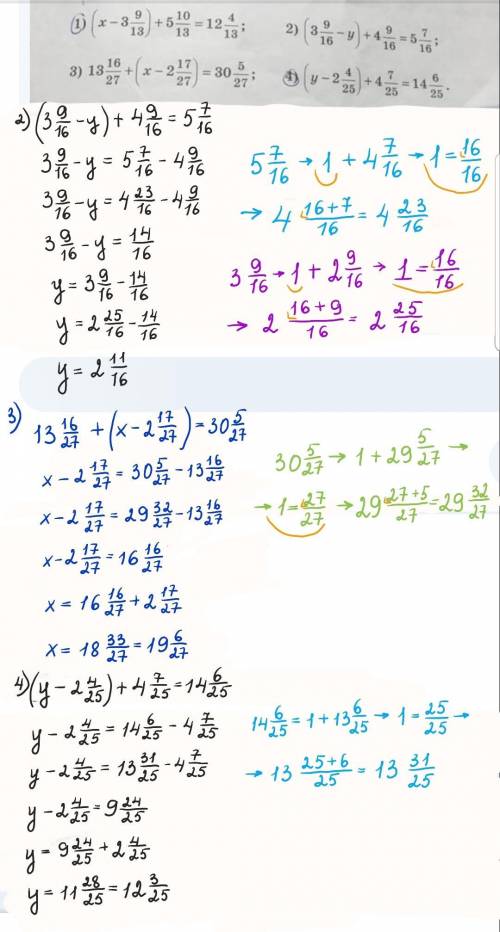 1) (x − 3 9/13) + 5 10/13 = 12 4/13; 2) (3 9/16 − y) + 4 9/16 = 5 7/16;
3) 13 16/27 + (x − 2 17/27) = 30 5/27; 4) (y − 2 4/25) + 4 7/25 = 14 6/25.
2) (3 9/16 − y) + 4 9/16 = 5 7/16
3 9/16 − y = 5 7/16 − 4 9/16
3 9/16 − y = 4 23/16 − 4 9/16
3 9/16 − y = 14/16
y = 3 9/16 − 14/16
y = 2 25/16 − 14/16
y = 2 11/16
5 7/16 → 1 + 4 7/16 → 1 = 16/16
→ 4 16+7/16 = 4 23/16
3 9/16 → 1 + 2 9/16 → 1 = 16/16
→ 2 16+9/16 = 2 25/16
3) 13 16/27 + (x − 2 17/27) = 30 5/27
x − 2 17/27 = 30 5/27 − 13 16/27
x − 2 17/27 = 29 32/27 − 13 16/27
x − 2 17/27 = 16 16/27
x = 16 16/27 + 2 17/27
x = 18 33/27 = 19 6/27
30 5/27 → 1 + 29 5/27 →
→ 1 = 27/27 → 29 27+5/27 = 29 32/27
4) (y − 2 4/25) + 4 7/25 = 14 6/25
y − 2 4/25 = 14 6/25 − 4 7/25
y − 2 4/25 = 13 31/25 − 4 7/25
y − 2 4/25 = 9 24/25
y = 9 24/25 + 2 4/25
y = 11 28/25 = 12 3/25
14 6/25 = 1 + 13 6/25 → 1 = 25/25 →
→ 13 25+6/25 = 13 31/25